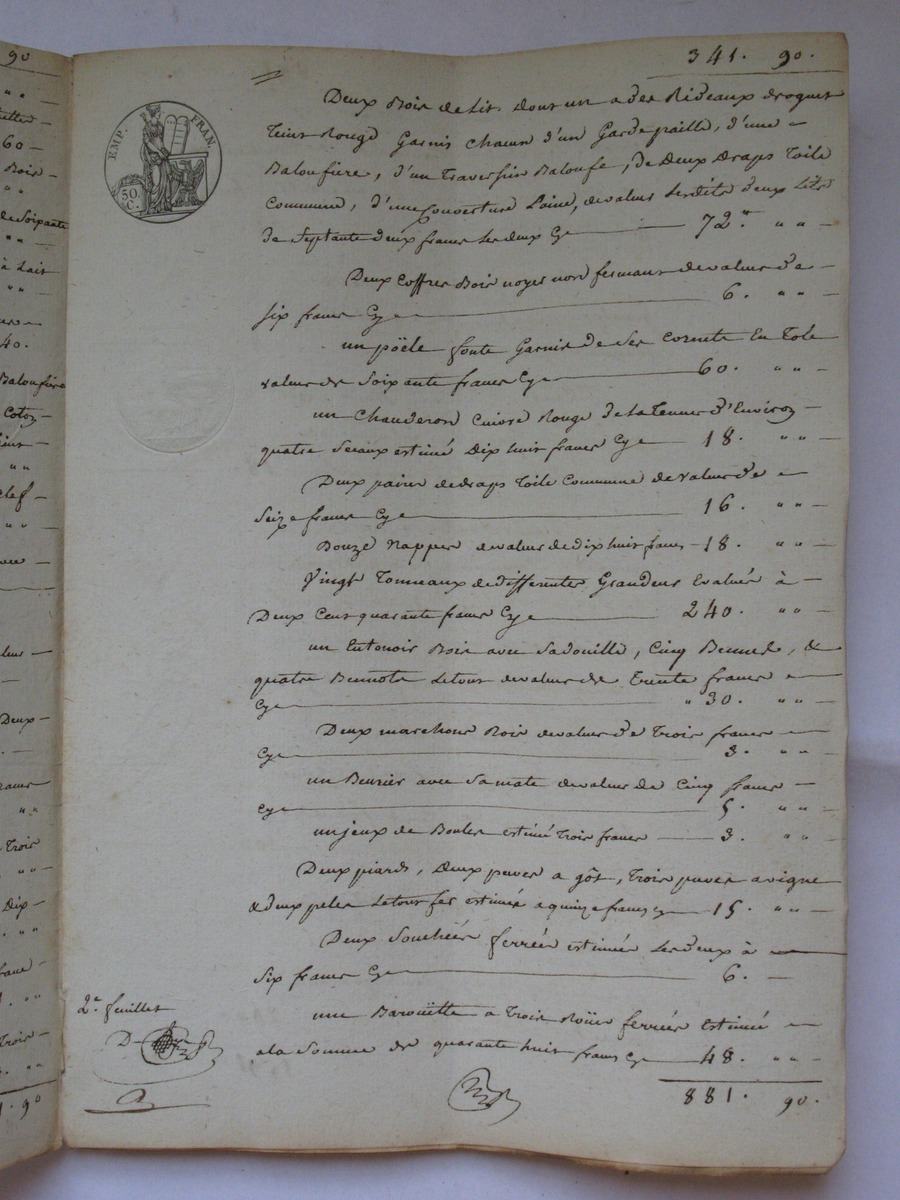 341. 90.
EMP. FRAN.
50. C.
Deux Bois de Lit dont un a des Rideaux droguet
teint Rouge Garnis chacun d'un Garde paille, d'une
Baloufiere, d'un traversin Baloufe, de Deux Draps toile
Commune, d'une Couverture Laine, de valeur lesdits deux Lits
de Septante deux francs les deux Cy 72 " "
Deux Coffres Bois noyer non fermant de valeur de
six francs Cy 6. " "
un pöele fonte Garnis de Ses Cornette En tole
valeur de Soixante francs Cy 60. " "
un Chauderon Cuivre Rouge de la tenue d'Environ
quatre Seaux estimé Dix huit francs Cy 18. " "
Deux paires de draps toile Commune de valeur de
Seize francs Cy 16. " "
Douze Nappes de valeur de dix huit francs 18. " "
Vingt Tonneaux de differentes Grandeur Evalués à
Deux Cent quarante francs Cy 240. " "
un Entonoir Bois avec Sa douille, Cinq Bennes, &
quatre Bennote Le tout de valeur de Trente francs
Cy " 30. " "
Deux marchons Bois de valeur de Trois francs
Cy 3. " "
un Beurier avec Sa mate de valeur de Cinq francs
Cy 5. " "
un jeux de Boules estimé trois francs 3. " "
Deux piards, deux paver a gôt, trois paver a vigne
& deux peles Le tout fer estimés a quinze francs Cy 15. " "
Deux Souchées ferrées estimées les deux à
Six francs Cy 6.
une Baroüette a trois Roües ferrées Estimée
a la Somme de quarante huit francs Cy 48. " "
881. 90.
2e. feuillet